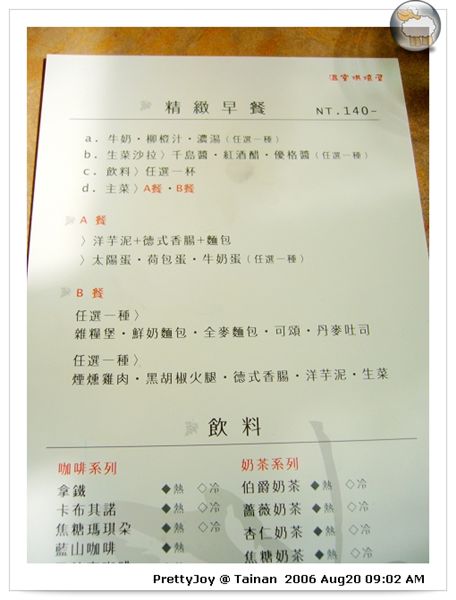 溫室烘焙屋
精緻早餐 NT.140-
a. 牛奶・柳橙汁・濃湯(任選一種)
b. 生菜沙拉〉千島醬・紅酒醋・優格醬(任選一種)
c. 飲料〉任選一杯
d. 主菜〉A餐・B餐
A 餐
〉洋芋泥+德式香腸+麵包
〉太陽蛋・荷包蛋・牛奶蛋(任選一種)
B 餐
任選一種〉
雜糧堡・鮮奶麵包・全麥麵包・可頌・丹麥吐司
任選一種〉
煙燻雞肉・黑胡椒火腿・德式香腸・洋芋泥・生菜
飲料
咖啡系列
拿鐵 ◆熱 ◇冷
卡布其諾 ◆熱 ◇冷
焦糖瑪琪朵 ◆熱 ◇冷
藍山咖啡 ◆熱
奶茶系列
伯爵奶茶 ◆熱 ◇冷
薔薇奶茶 ◆熱 ◇冷
杏仁奶茶 ◆熱 ◇冷
焦糖奶茶 ◆熱 ◇冷
PrettyJoy @ Tainan 2006 Aug20 09:02 AM